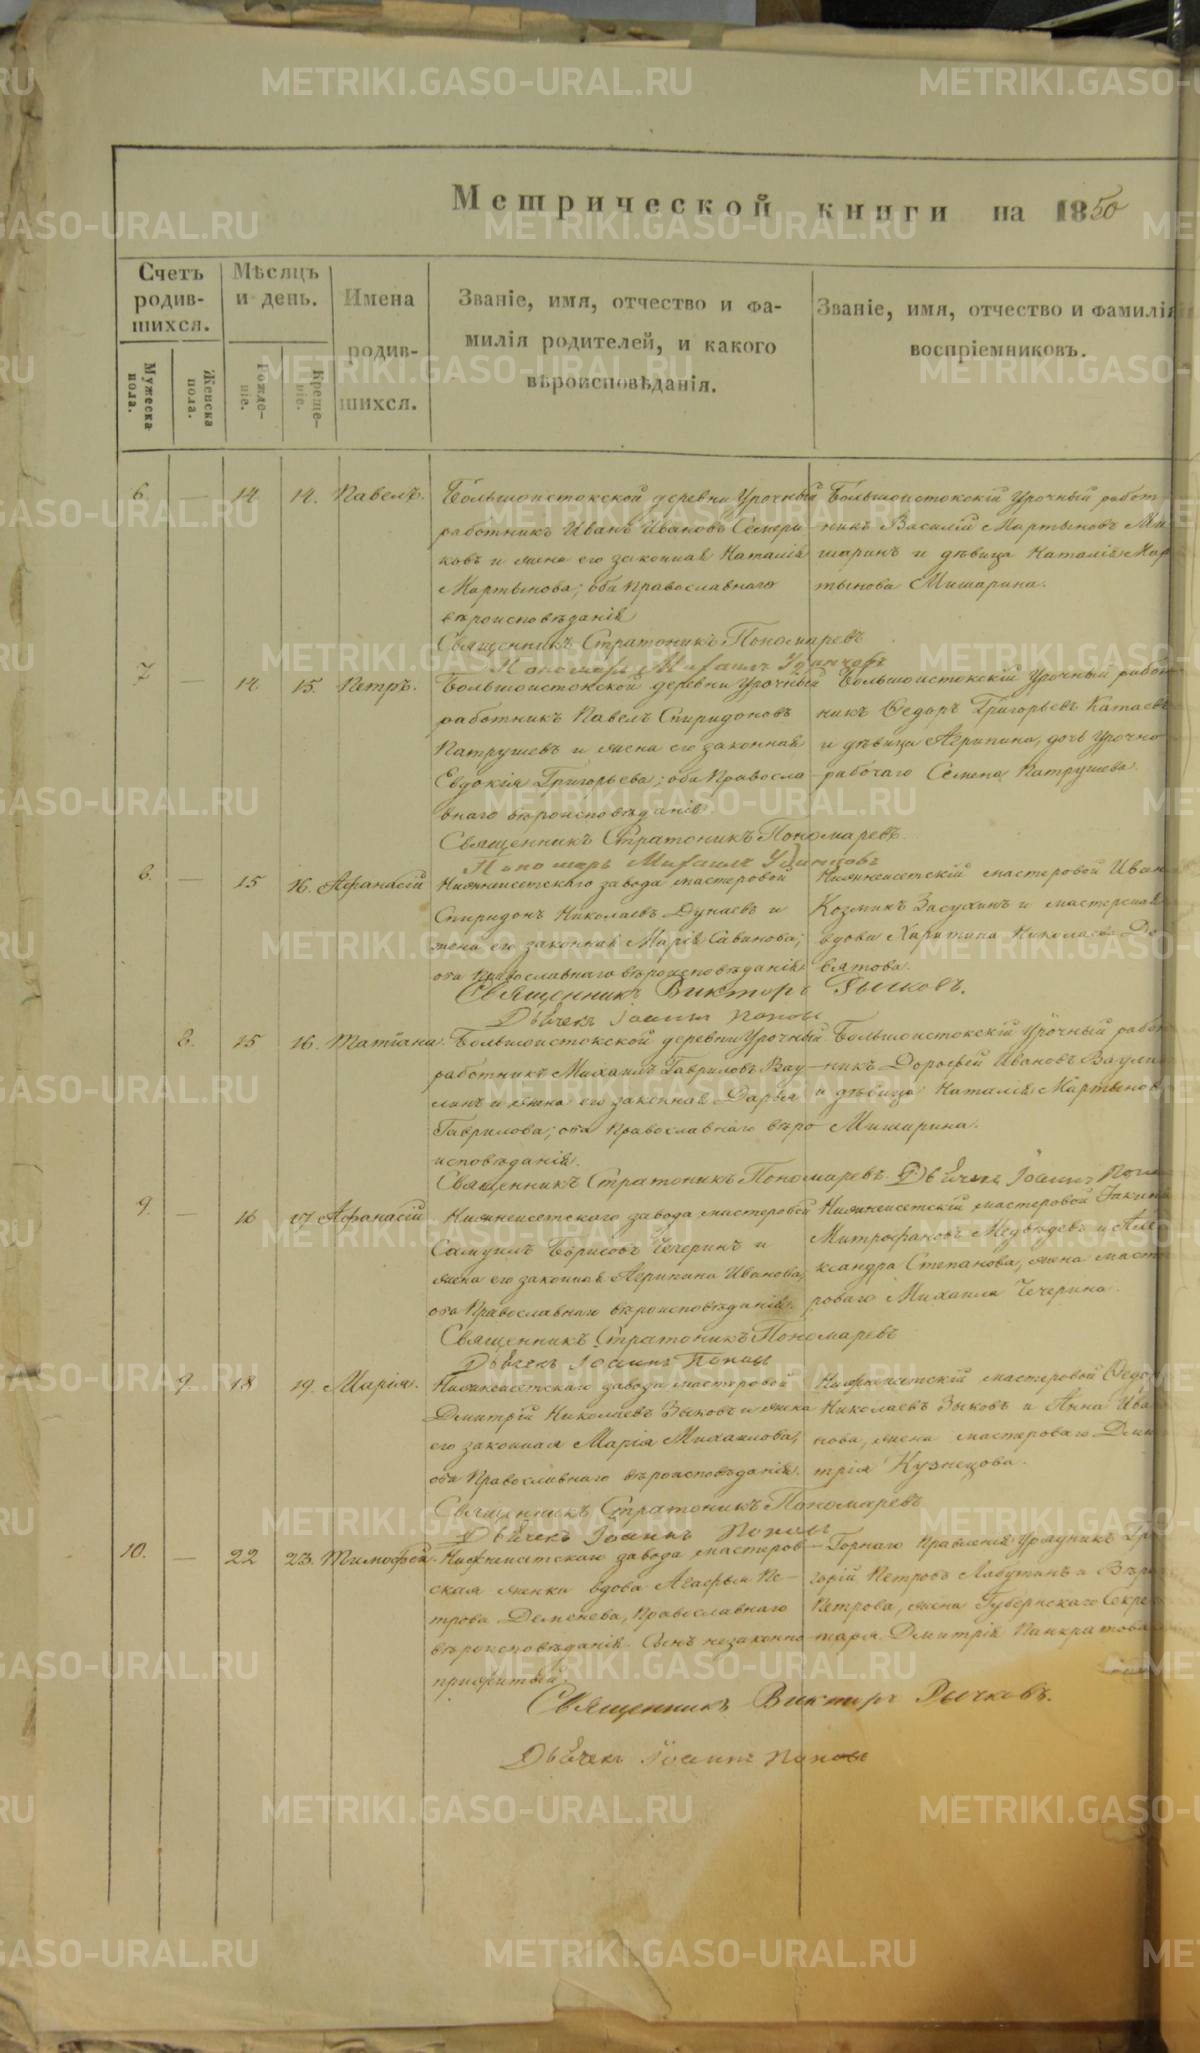 Метрической книги на 1850
Счетъ родившихся.
Мужеска пола.
Женска пола.
Мѣсяцъ и день.
Рожденіе.
Крещеніе.
Имена родившихся.
Званіе, имя, отчество и фамилія родителей, и какого вѣроисповѣданія.
Званіе, имя, отчество и фамилія воспріемниковъ.
6. — 14 14. Павелъ.
Большоистокской деревни Урочный
работникъ Иванъ Ивановъ
ковъ и жена его законная Наталія
Мартынова; оба Православнаго
вѣроисповѣданія
Большоистокскій Урочный работ
никъ Василій Мартыновъ Ми
шаринъ и дѣвица Наталія Мар
тынова Мишарина.
Священникъ Стратоникъ Пономаревъ
Пономарь Михаилъ
7 — 14 15. Петръ.
Большоистокской деревни Урочный
работникъ Павелъ Спиридоновъ
Патрушевъ и жена его законная
Евдокія Григорьева; оба Правосла
внаго вѣроисповѣданія.
Большоистокскій Урочный работ
никъ Ѳедоръ Григорьевъ Катаевъ
и дѣвица Агрипина, дочь Урочно
рабочаго Семена Патрушева.
Священникъ Стратоникъ Пономаревъ.
Пономарь Михаилъ
8. — 15 16. Афанасій
Нижнеисетскаго завода мастеровой
Спиридонъ Николаевъ Дунаевъ и
жена его законная Марія Савинова;
оба Православнаго вѣроисповѣданія
Нижнеисетскій мастеровой Иван
Козминъ Засухинъ и мастерская
вдова Харитина Николаева
вятова.
Священникъ Викторъ Рычковъ.
Дьячекъ Іоаннъ Поповъ
8. 15 16. Татіана.
Большоистокской деревни Урочный
работникъ Михаилъ Гавриловъ Вау
линъ и жена его законная Дарья
Гаврилова; оба Православнаго вѣро
исповѣданія.
Большоистокскій Урочный работ
никъ Дорофей Ивановъ Ваулин
и дѣвица Наталія Мартынов
Мишарина.
Священникъ Стратоникъ Пономаревъ. Дьячекъ Іоаннъ Попов
9. — 16 17 Афанасій
Нижнеисетскаго завода мастеровой
Самуилъ Борисовъ Чечеринъ и
жена его законная Агрипина Иванова;
оба Православнаго вѣроисповѣданія.
Нижнеисетскій мастеровой
Митрофановъ Медвѣдевъ и Але
ксандра Степанова, жена масте
роваго Михаила Чечерина.
Священникъ Стратоникъ Пономаревъ
Дьячекъ Іоаннъ Поповъ
9 18 19. Марія.
Нижнеисетскаго завода мастеровой
Дмитрій Николаевъ Зыковъ и жена
его законная Марія Михаилова;
оба Православнаго вѣроисповѣданія.
Нижнеисетскій мастеровой Ѳедор
Николаевъ Зыковъ и Анна Ива
нова, жена мастероваго Дми
трія Кузнецова.
Священникъ Стратоникъ Пономаревъ
Дьячекъ Іоаннъ Поповъ
10. — 22 23. Тимофей.
Нижнеисетскаго завода мастеров
ская женка вдова Агафья Пе
трова Деменева, Православнаго
вѣроисповѣданія. Сынъ незаконно
прижитый.
Горнаго Правленія Урядникъ Гри
горій Петровъ Лабутинъ и Вѣра
Петрова, жена Губернскаго Секре
таря Дмитрія Панкратова
Священникъ Викторъ Рычковъ.
Дьячекъ Іоаннъ Поповъ
METRIKI.GASO-URAL.RU